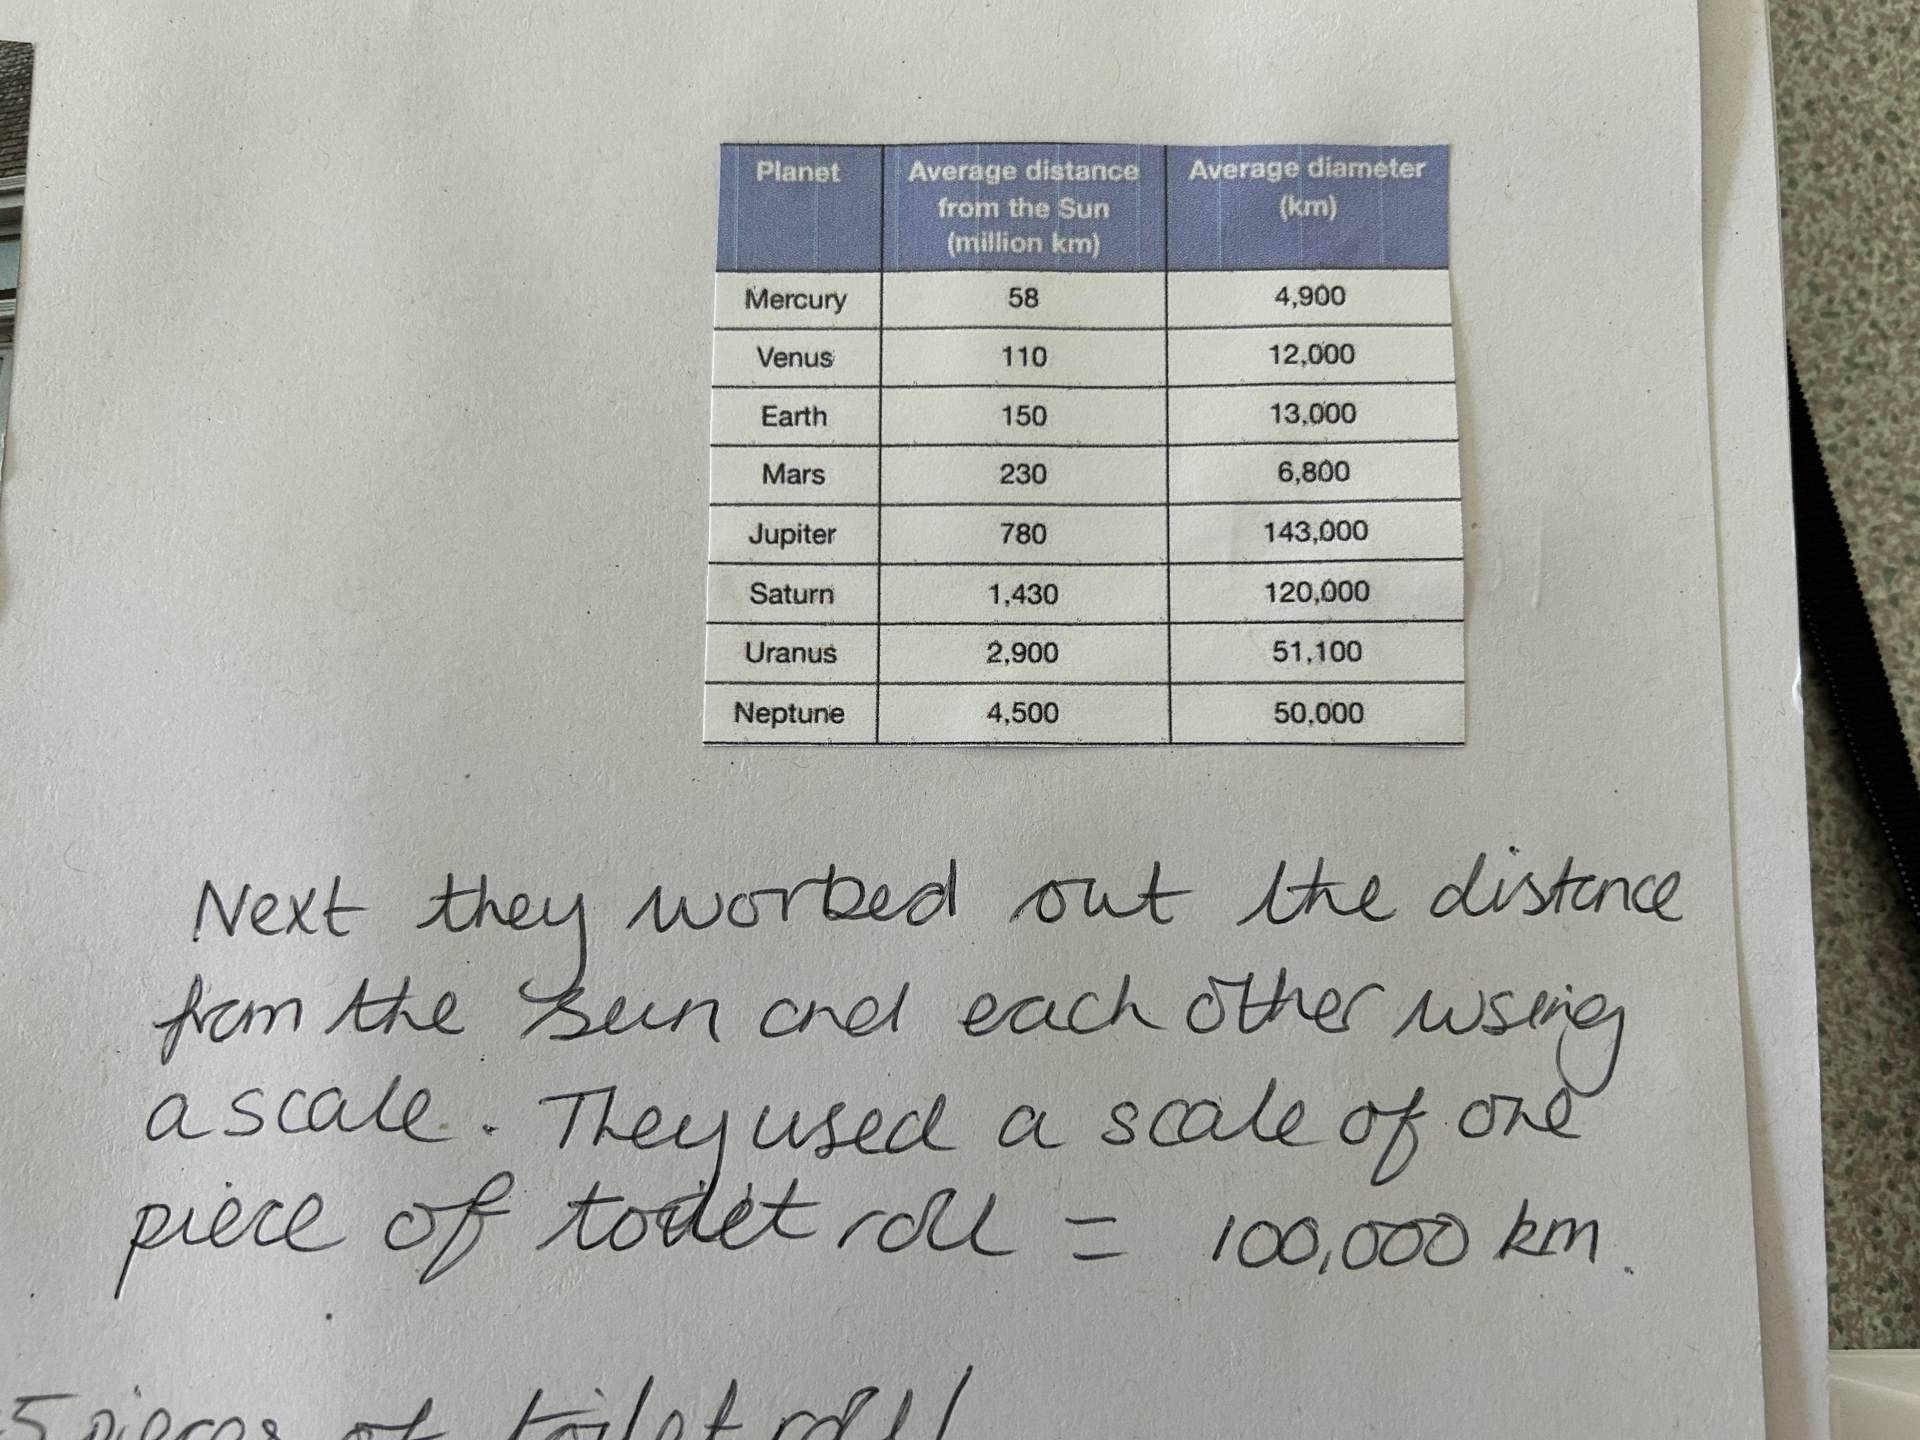 Planet Average distance from the Sun (million km) Average diameter (km)
Mercury 58 4,900
Venus 110 12,000
Earth 150 13,000
Mars 230 6,800
Jupiter 780 143,000
Saturn 1,430 120,000
Uranus 2,900 51,100
Neptune 4,500 50,000
Next they worked out the distance
from the Sun and each other using
a scale. They used a scale of one
piece of toilet roll = 100,000 km.
5 pieces of toilet roll